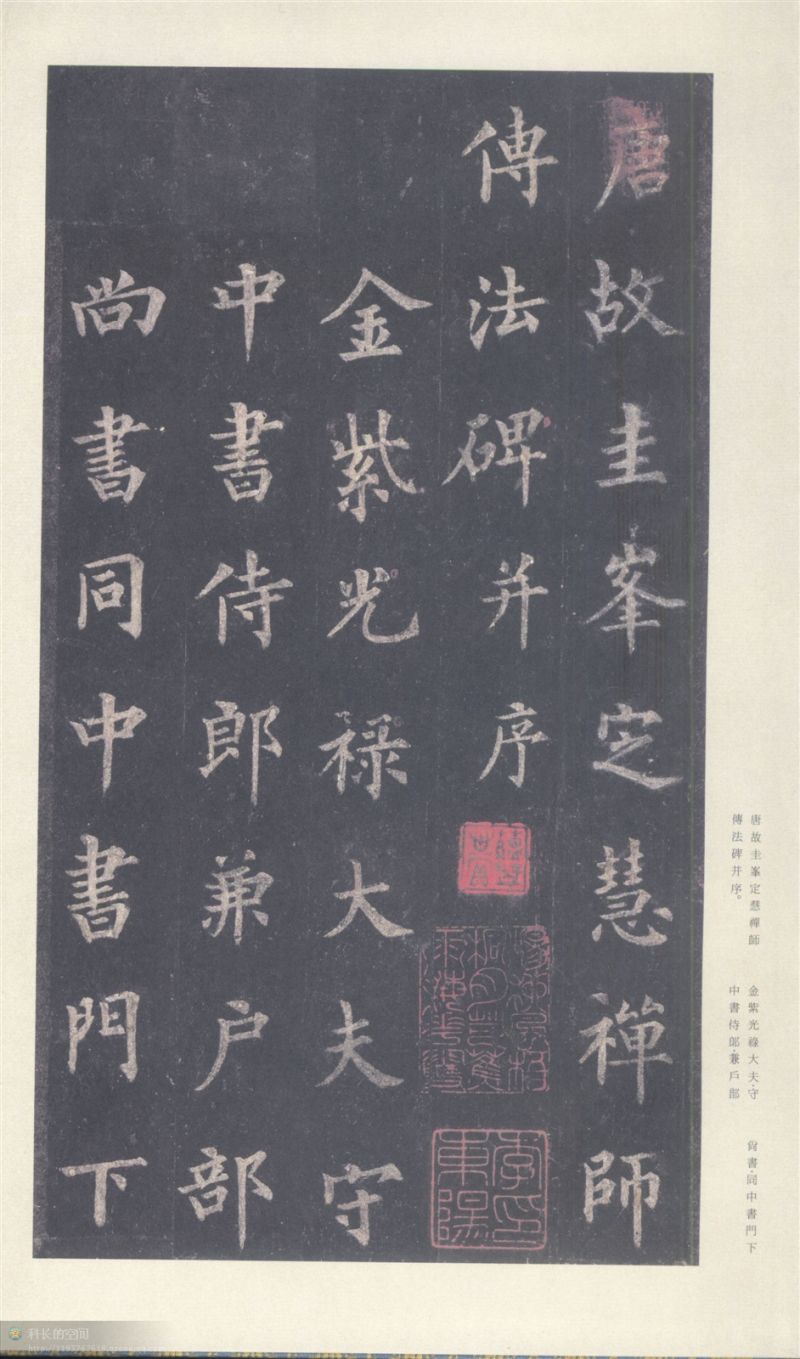 唐故圭峯定慧禪師
傳法碑并序
金紫光祿大夫守
中書侍郎兼户部
尚書同中書門下
唐故圭峯定慧禪師
傳法碑并序。
金紫光祿大夫·守
中書侍郎·兼戶部
尙書·同中書門下
科长的空间